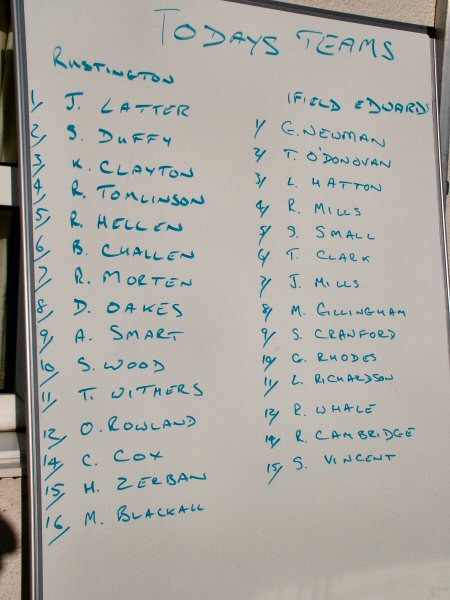 TODAYS TEAMS
RUSTINGTON
1/ J. LATTER
2/ S. DUFFY
3/ K. CLAYTON
4/ R. TOMLINSON
5/ R. HELLEN
6/ B. CHALLEN
7/ R. MORTEN
8/ D. OAKES
9/ A. SMART
10/ S. WOOD
11/ T. WITHERS
12/ O. ROWLAND
14/ C. COX
15/ H. ZERBAN
16/ M. BLACKALL
IFIELD EDWARDS
1/ G. NEWMAN
2/ T. O'DONOVAN
3/ L. HATTON
4/ R. MILLS
5/ S. SMALL
6/ T. CLARK
7/ J. MILLS
8/ M. GILLINGHAM
9/ S. CRANFORD
10/ G. RHODES
11/ L. RICHARDSON
12/ R. WHALE
14/ R. CAMBRIDGE
15/ S. VINCENT